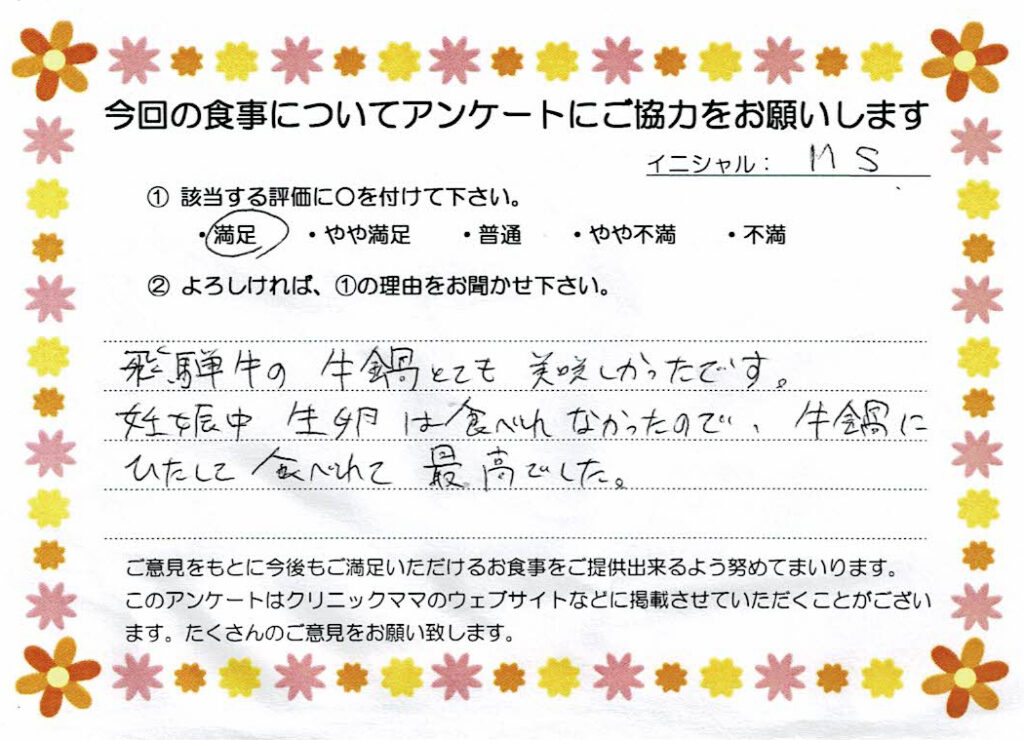 今回の食事についてアンケートにご協力をお願いします
イニシャル： M S
① 該当する評価に〇を付けて下さい。
・満足 ・やや満足 ・普通 ・やや不満 ・不満
② よろしければ、①の理由をお聞かせ下さい。
飛騨牛の 牛鍋とても 美味しかったです。
妊娠中 生卵は食べれなかったので、牛鍋に
ひたして 食べれて 最高でした。
ご意見をもとに今後もご満足いただけるお食事をご提供出来るよう努めてまいります。
このアンケートはクリニックママのウェブサイトなどに掲載させていただくことがござい
ます。たくさんのご意見をお願い致します。